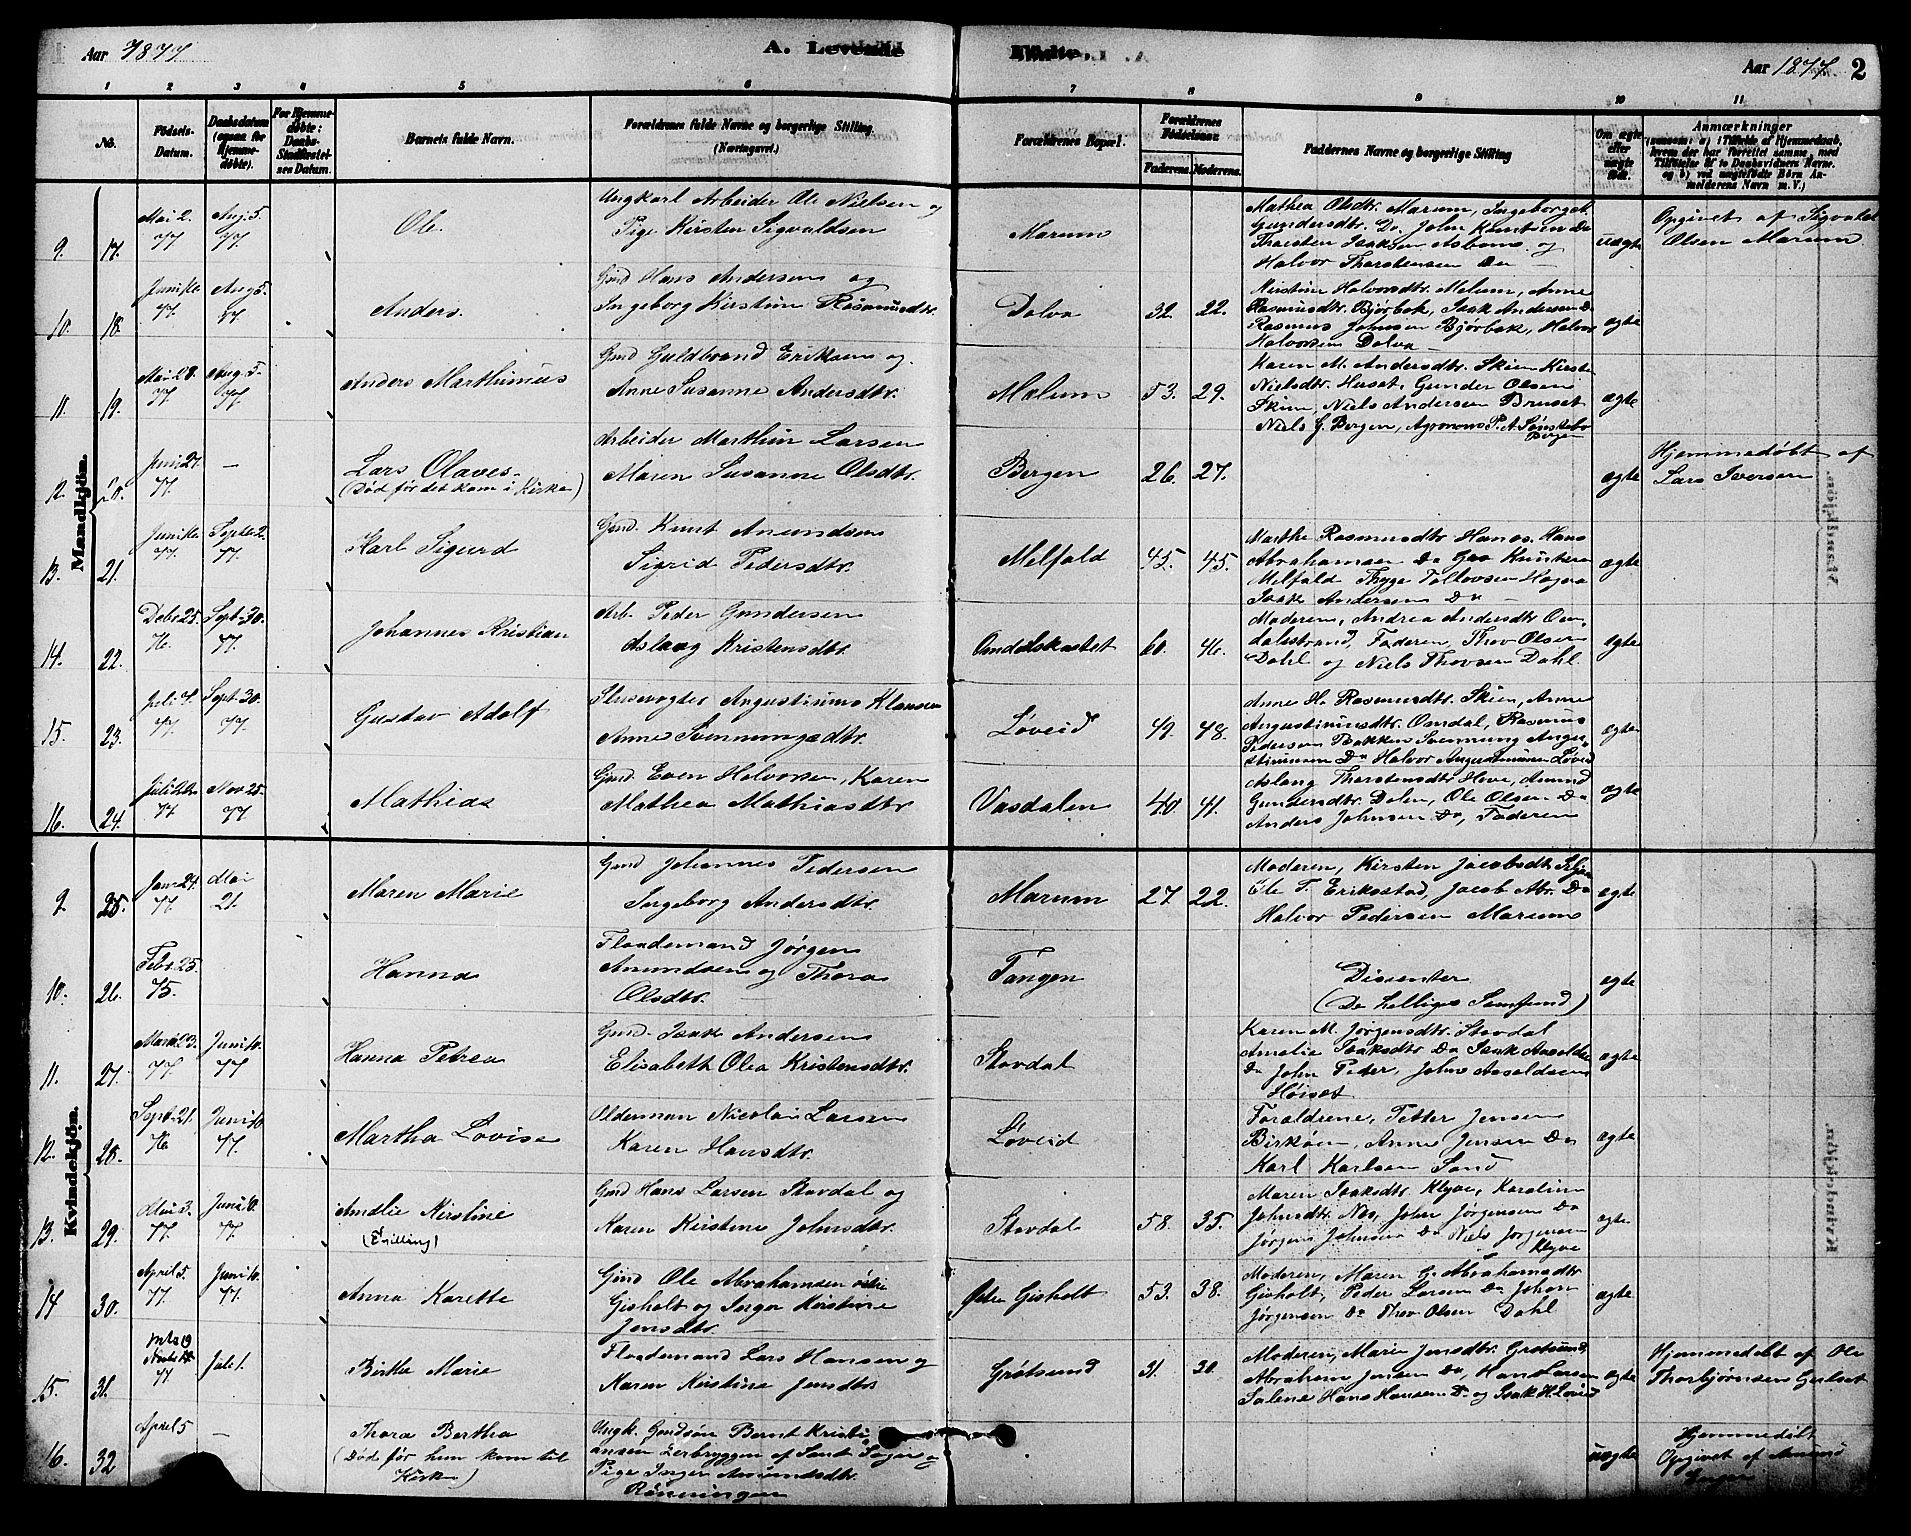 Aar 1877
A. Levende
Fødte.
Aar 1877. 2
1 2 3 4 5 6 7 8 9 10 11
No.
Fødsels-Datum.
Daabsdatum (ogsaa for Hjemmedøbte).
For Hjemmedøbte: Daabs-Stadfæstelsens Datum.
Barnets fulde Navn.
Forældrenes fulde Navne og borgerlige Stilling. (Næringsvei.)
Forældrenes Bopæl.
Forældrenes Fødselsaar
Faderens. Moderens.
Faddernes Navne og borgerlige Stilling
Om ægte eller uægte født.
Anmærkninger
Mandkjøn.
9. 17. Mai 2. 77 Aug. 5. 77.
Ole
Ungkarl Arbeider Ole Nielsen og
Pige Kirsten Sigvaldsen
Marum
Mathea Olsdtr. Marum, Ingeborg A.
Gundersdtr. Do, John Knutsen Do
Thorsten Isaksen Asbom og
Halvor Thorstensen Do
uægte
Opgivet af Sigvald
Olsen Marum
10. 18. 77. Aug 5. 77
Anders.
Gmd Hans Andersen og
Ingeborg Kirstine Rasmusdtr.
Dolva 32. 22.
Kirstine Halvorsdtr. Melum, Anne
Rasmusdtr. Bjørbek, Isak Andersen Do
Rasmus Johnsen Bjørbek, Halvor
Halvorsen Dolva
ægte
11. 19. Mai 28. 77 Aug. 5. 77.
Anders Marthinius
Gmd Guldbrand Eriksen og
Anne Susanne Andersdtr.
Melum 53. 29.
Karen M. Andersdtr. Skien Kirsti
Nielsdtr. Huset, Gunder Olsen
Skien, Niels Andersen Bruset
Niels J. Bergen, Agronom P. A. Sønstebø
Bergen
ægte
12. 20. Juni 27. 77. —
Lars Olaves.
(Død før det kom i Kirke)
Arbeider Marthin Larsen
Maren Susanne Olsdtr.
Bergen 26. 27.
ægte
Hjemmedøbt af
Lars Iversen
13. 21. 77. Septbr 2. 77.
Karl Sigurd
Gmd. Knut Amundsen
Sigrid Pedersdtr.
Melfald 45. 45.
Marthe Rasmusdtr. Hanes. Hans
Abrahamsen Do Knutsen
Melfald Thyge Tollovsen Hagen
Isak Andersen Do
ægte
14. 22. Debr 25. 76. Sept. 30. 77.
Johannes Kristian
Arb. Peder Gundersen
Aslaug Kristensdtr.
Omdalskastet 60. 46.
Moderen, Andrea Andersdtr Om-
dalsstrand, Faderen, Thov Olsen
Dahl og Niels Thovsen Dahl
ægte
15. 23. Juli 7. 77 Sept. 30. 77.
Gustav Adolf
Slusevogter Augustinus Klausen
Anne Svenningsdtr.
Løveid 49. 48.
Anne H. Rasmusdtr. Skien, Anne
Augustinusdtr. Omdal, Rasmus
Pedersen Bakken Svennung Augu-
stinusen Do Halvor Augustinusen Løveid
ægte
16. 24. 77. Nov 25. 77
Mathias
Gmd. Even Halvorsen, Karen
Mathea Mathiasdtr.
Vasdalen 40. 41.
Aslaug Thorstensdtr. Hove, Amund
Gundersdtr. Dolen, Ole Olsen Do
Anders Johnsen Do, Faderen
ægte
Kvindekjøn.
9. 25. Jan. 24. 77. Mai 21.
Maren Marie
Gmd Johannes Pedersen
Ingeborg Andersdtr.
Marum 27. 22.
Moderen, Kirsten Jacobsdtr.
Ole T. Erikstad, Jacob Abr. Do
Halvor Pedersen Marum
ægte
10. 26. Febr. 25. 75.
Hanna
Flaademand Jørgen
Amundsen og Thora
Olsdtr.
Tangen
Dissenter
(De helliges Samfund)
ægte
11. 27. Marts 23. 77. Juni 10. 77
Hanna Petrea
Gmd. Isak Andersen
Elisabeth Olea Kristensdtr.
Stovdal
Karen M. Jørgensdtr. Stovdal
Amalie Isaksdtr Do Isak Aasoldsen
Do John Peder, John Aasoldsen
Høiset
ægte
12. 28. Sept. 21. 76 Juni 10 77.
Martha Lovise
Olderman Nicolai Larsen
Karen Hansdtr.
Løveid
Forældrene, Petter Jensen
Birkøen, Anne Jensen Do
Karl Karlsen Sand
ægte
13. 29. Mai 3. 77. Juni 10. 77.
Amalie Kirstine
(Tvilling)
Gmd Hans Larsen Stovdal og
Karen Kirstine Johnsdtr.
Stovdal 58. 35.
Maren Isaksdtr. Klyve, Karoline
Johnsdtr. Nes, John Jørgensen Do
Jørgen Johnsen Do Niels Jørgensen
Klyve
ægte
14 30. April 5. 77. Juni 10. 77.
Anna Karette
Gmd Ole Abrahamsen
Gisholt og Inger Kirstine
Jensdtr.
Gisholt 53. 38.
Moderen, Maren G. Abrahamsdtr
Gisholt, Peder Larsen Do Johan
Jørgensen Do Thov Olsen Dahl
ægte
15. 31. 77 Juli 1.
Birthe Marie
Flaademand Lars Hansen og
Karen Kirstine Jensdtr.
Grøtsund 31. 30.
Moderen, Marie Jensdtr. Grøtsund,
Abraham Jensen Do, Hans Larsen
Salene Hans Hansen Do og Isak H. Løveid
ægte
Hjemmedøbt af Ole
Thorbjørnsen Geitset
16. 32 April 5 —
Thora Bertha
(Død før hun kom til
Kirke)
Ungk. Gmdsøn Bernt Kristi-
ansen Lerbryggen af Sande Sogn og
Pige Inger Amundsdtr.
Rönningen
uægte
Hjemmedøbt
Opgivet af Amund